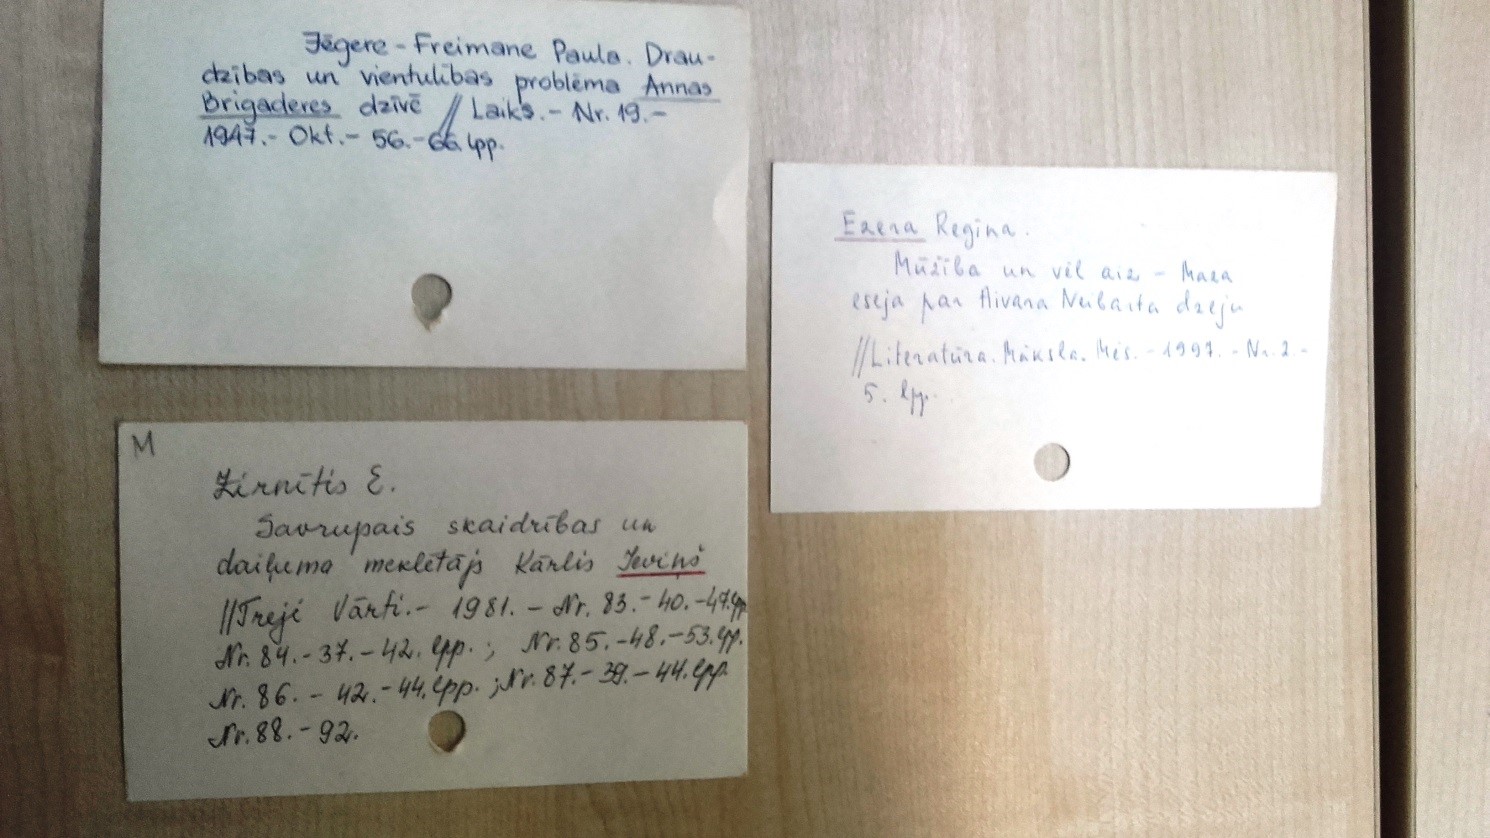 Jēgere-Freimane Paula. Drau-
dzības un vientulības problēma Annas
Brigaderes dzīvē // Laiks.- Nr. 19.-
1947.- Okt.- 56.-66. lpp.
Ezera Regīna.
Mūžība un vēl aiz - Maza
eseja par Aivara Neibarta dzeju
// Literatūra. Māksla. Mēs. - 1997. - Nr. 2. -
5. lpp.
M
Zirnītis E.
Savrupais skaidrības un
daiļuma meklētājs Kārlis Ieviņš
// Treji Vārti. - 1981. - Nr. 83. - 40. - 47. lpp
Nr. 84. - 37. - 42. lpp. ; Nr. 85. - 48. - 53. lpp.
Nr. 86. - 42. - 44. lpp. ; Nr. 87. - 39. - 44. lpp.
Nr. 88. - 92.